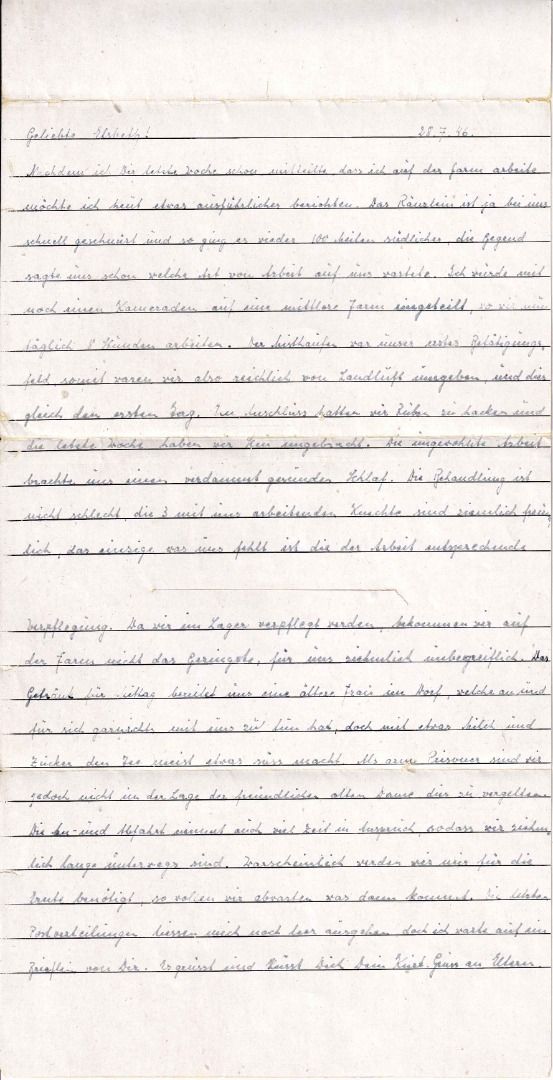 Geliebte Elsbeth! 28.7.46.
Nachdem ich Dir letzte Woche schon mitteilte, dass ich auf der Farm arbeite
möchte ich heut etwas ausführlicher berichten. Das Ränzlein ist ja bei uns
schnell geschnürt und so ging es wieder 100 Meilen südlicher, die Gegend
sagte uns schon welche Art von Arbeit auf uns wartete. Ich wurde mit
noch einen Kameraden auf eine mittlere Farm eingeteilt, wo wir nun
täglich 8 Stunden arbeiten. Der Misthaufen war unser erstes Betätigungs
feld, somit waren wir also reichlich von Landluft umgeben, und das
gleich den ersten Tag. Im Anschluss hatten wir Rüben zu hacken und
die letzte Woche haben wir Heu eingebracht. Die ungewohnte Arbeit
brachte uns einen verdammt gesunden Schlaf. Die Behandlung ist
nicht schlecht, die 3 mit uns arbeitenden Knechte sind ziemlich freund
lich, das einzige was uns fehlt ist die der Arbeit entsprechende
Verpflegung. Da wir im Lager verpflegt werden, bekommen wir auf
der Farm nicht das Geringste, für uns ziemlich unbegreiflich. Das
Getränk für Mittag bereitet uns eine ältere Frau im Dorf, welche an und
für sich garnichts mit uns zu tun hat, doch mit etwas Milch und
Zucker den Tee meist etwas süss macht. Als arme Prisoner sind wir
jedoch nicht in der Lage der freundlichen alten Dame dies zu vergelten.
Die An- und Abfahrt nimmt auch viel Zeit in Anspruch, sodass wir ziem
lich lange unterwegs sind. Warscheinlich werden wir nur für die
Ernte benötigt, so wollen wir abwarten was dann kommt. Die letzten
Postverteilungen liessen mich noch leer ausgehen, doch ich warte auf ein
Brieflein von Dir. Es grüsst und küsst Dich Dein Kurt. Gruss an Eltern.